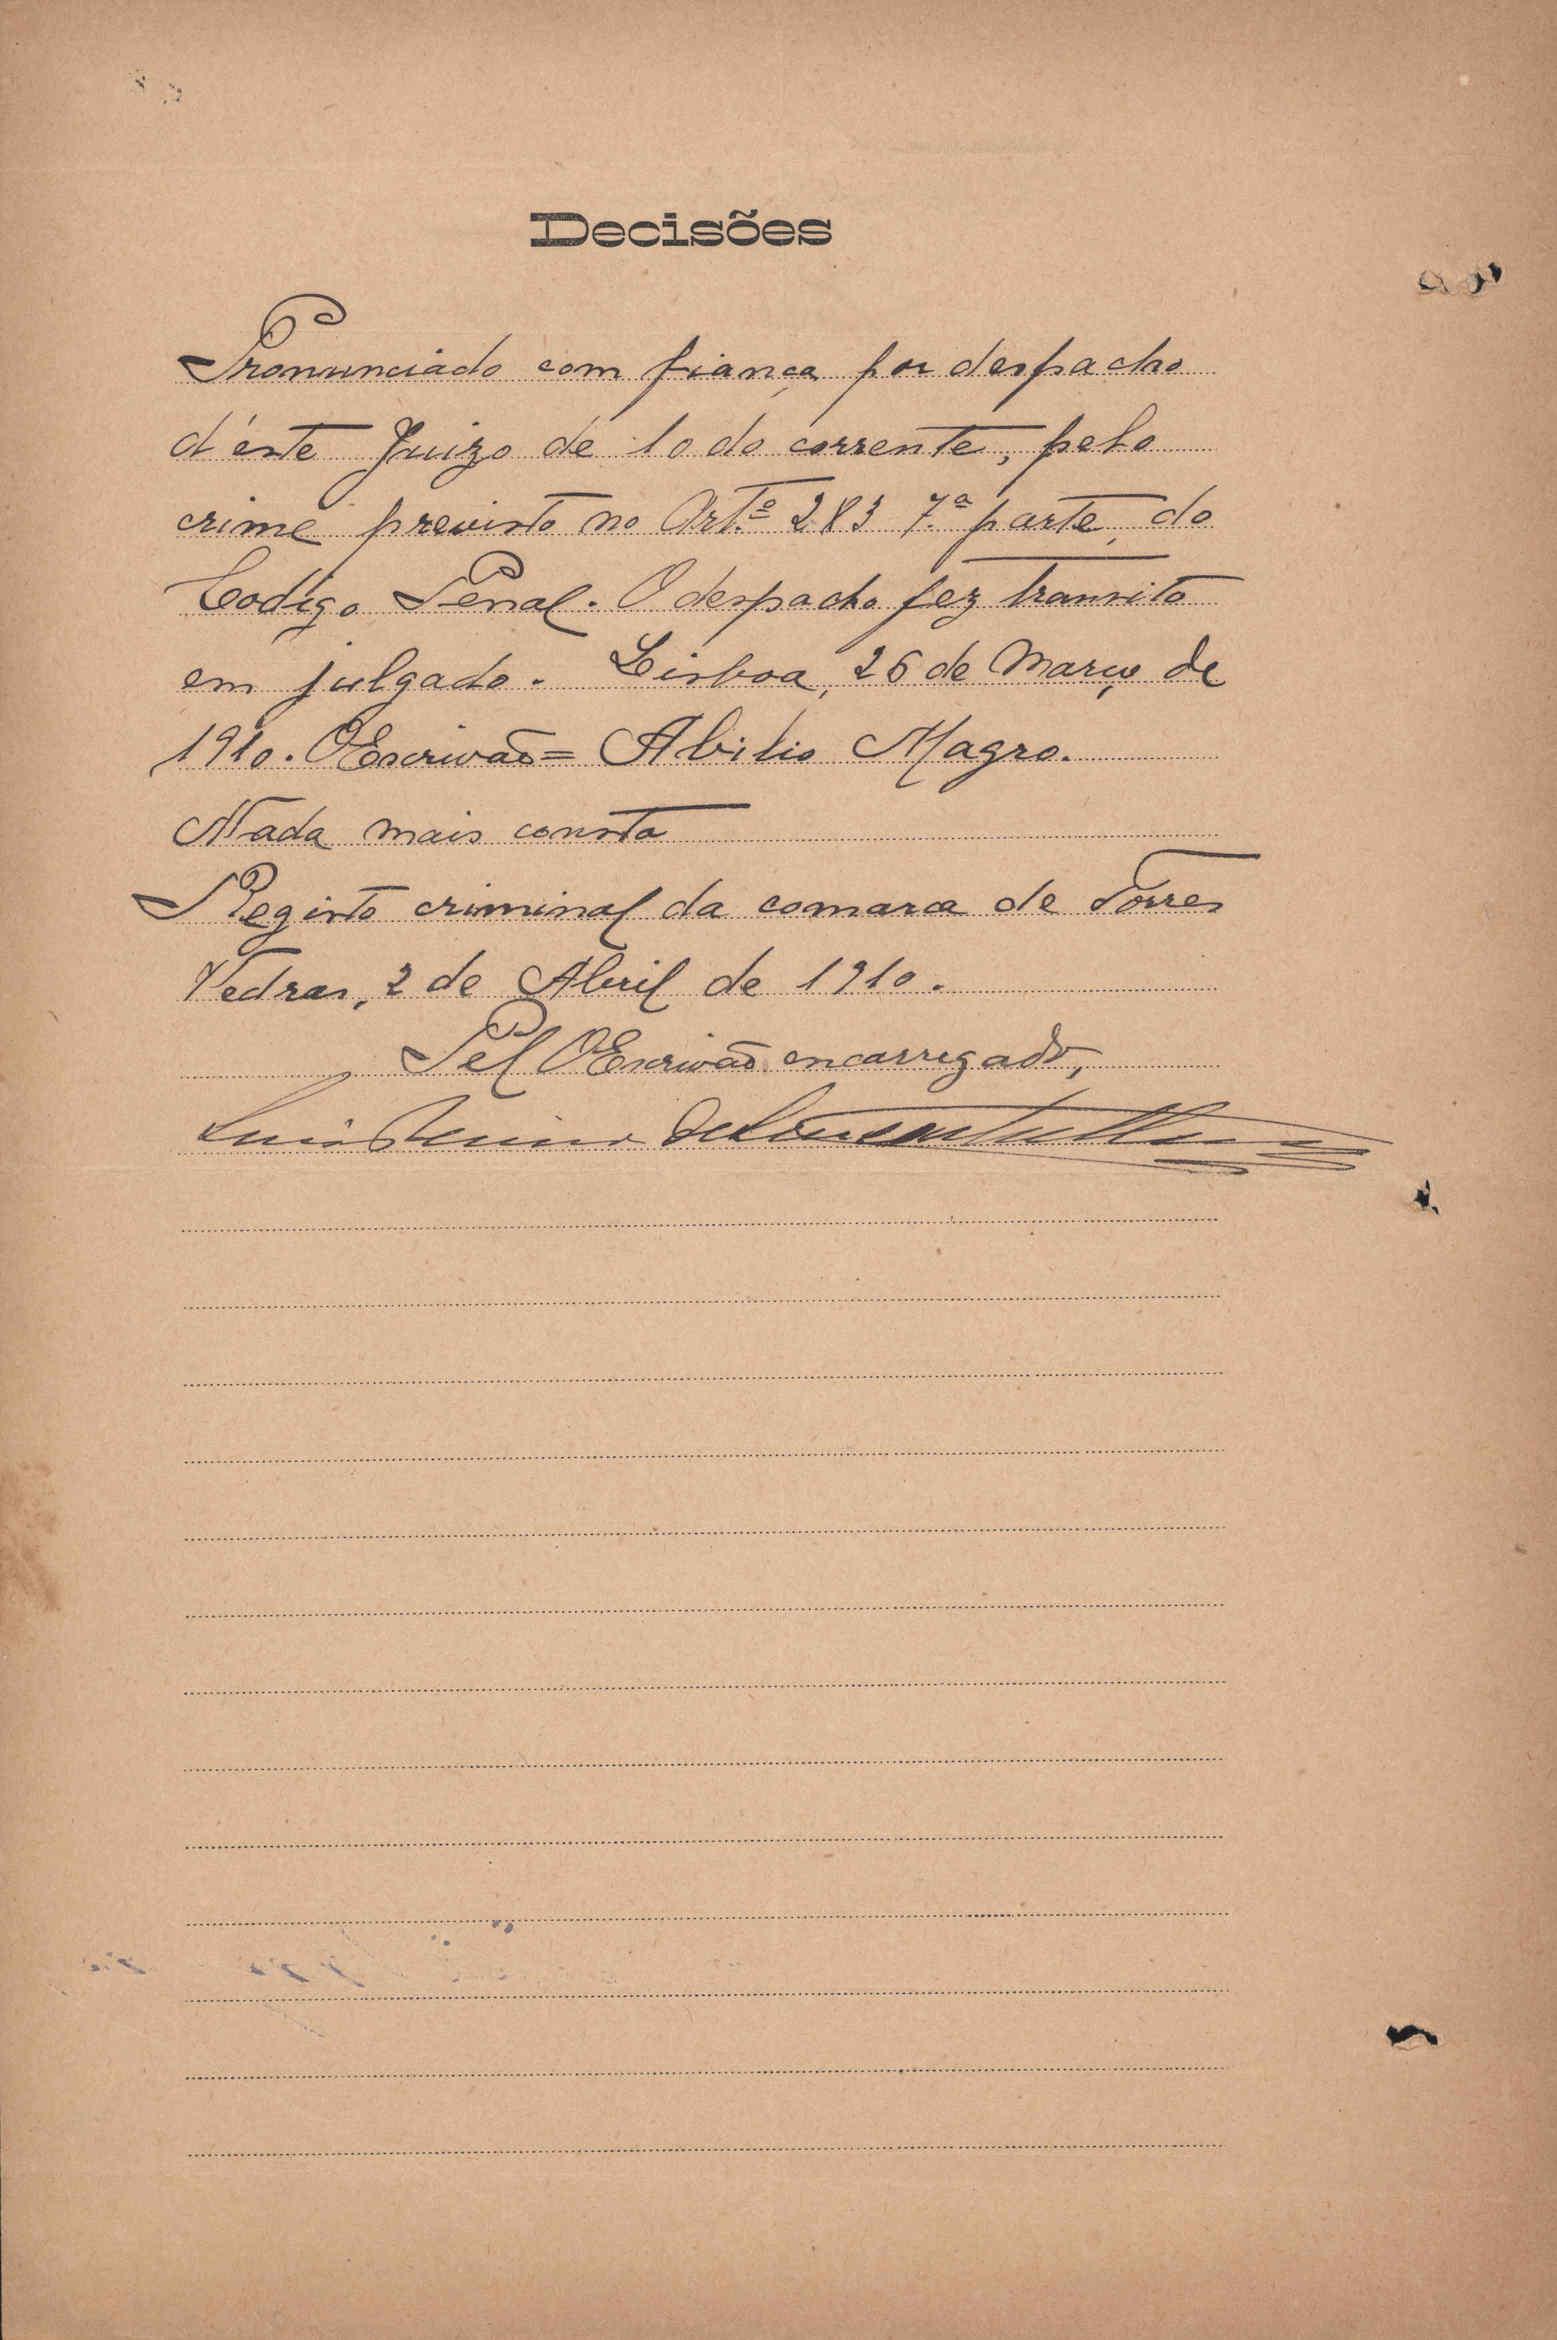 Decisões
Pronunciado com fiança por despacho
d'éste Juizo de 10 do corrente, pelo
crime previsto no Art.º 283 7.ª parte, do
Codigo Penal. O despacho fez transito
em julgado. Lisboa, 26 de Março de
1910. O Escrivão = Abilio Magro.
Nada mais consta
Registo criminal da comarca de Torres
Vedras, 2 de Abril de 1910.
Pel O Escrivão encarregado,
Luis